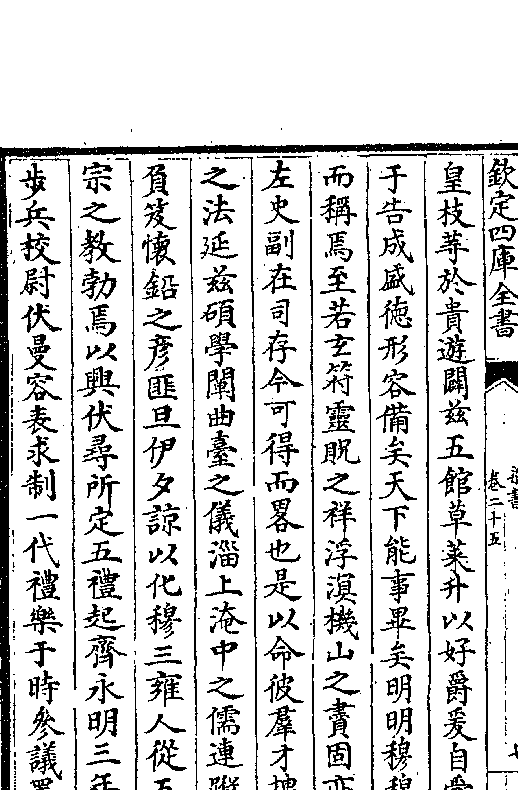 欽定四庫全書
卷二十五
皇枝等於貴遊闢兹五館草萊升以好爵爰自
于告成盛徳形容備矣天下能事畢矣明明穆穆
而稱焉至若玄符靈貺之祥浮溟機山之賮固亦
左史副在司存今可得而畧也是以命彼羣才
之法延兹碩學闡曲臺之儀淄上淹中之儒連
負笈懐鉛之彦匪旦伊夕諒以化穆三雍人從五
宗之教勃焉以興伏尋所定五禮起齊永明三年
步兵校尉伏曼容表求制一代禮樂于時參議